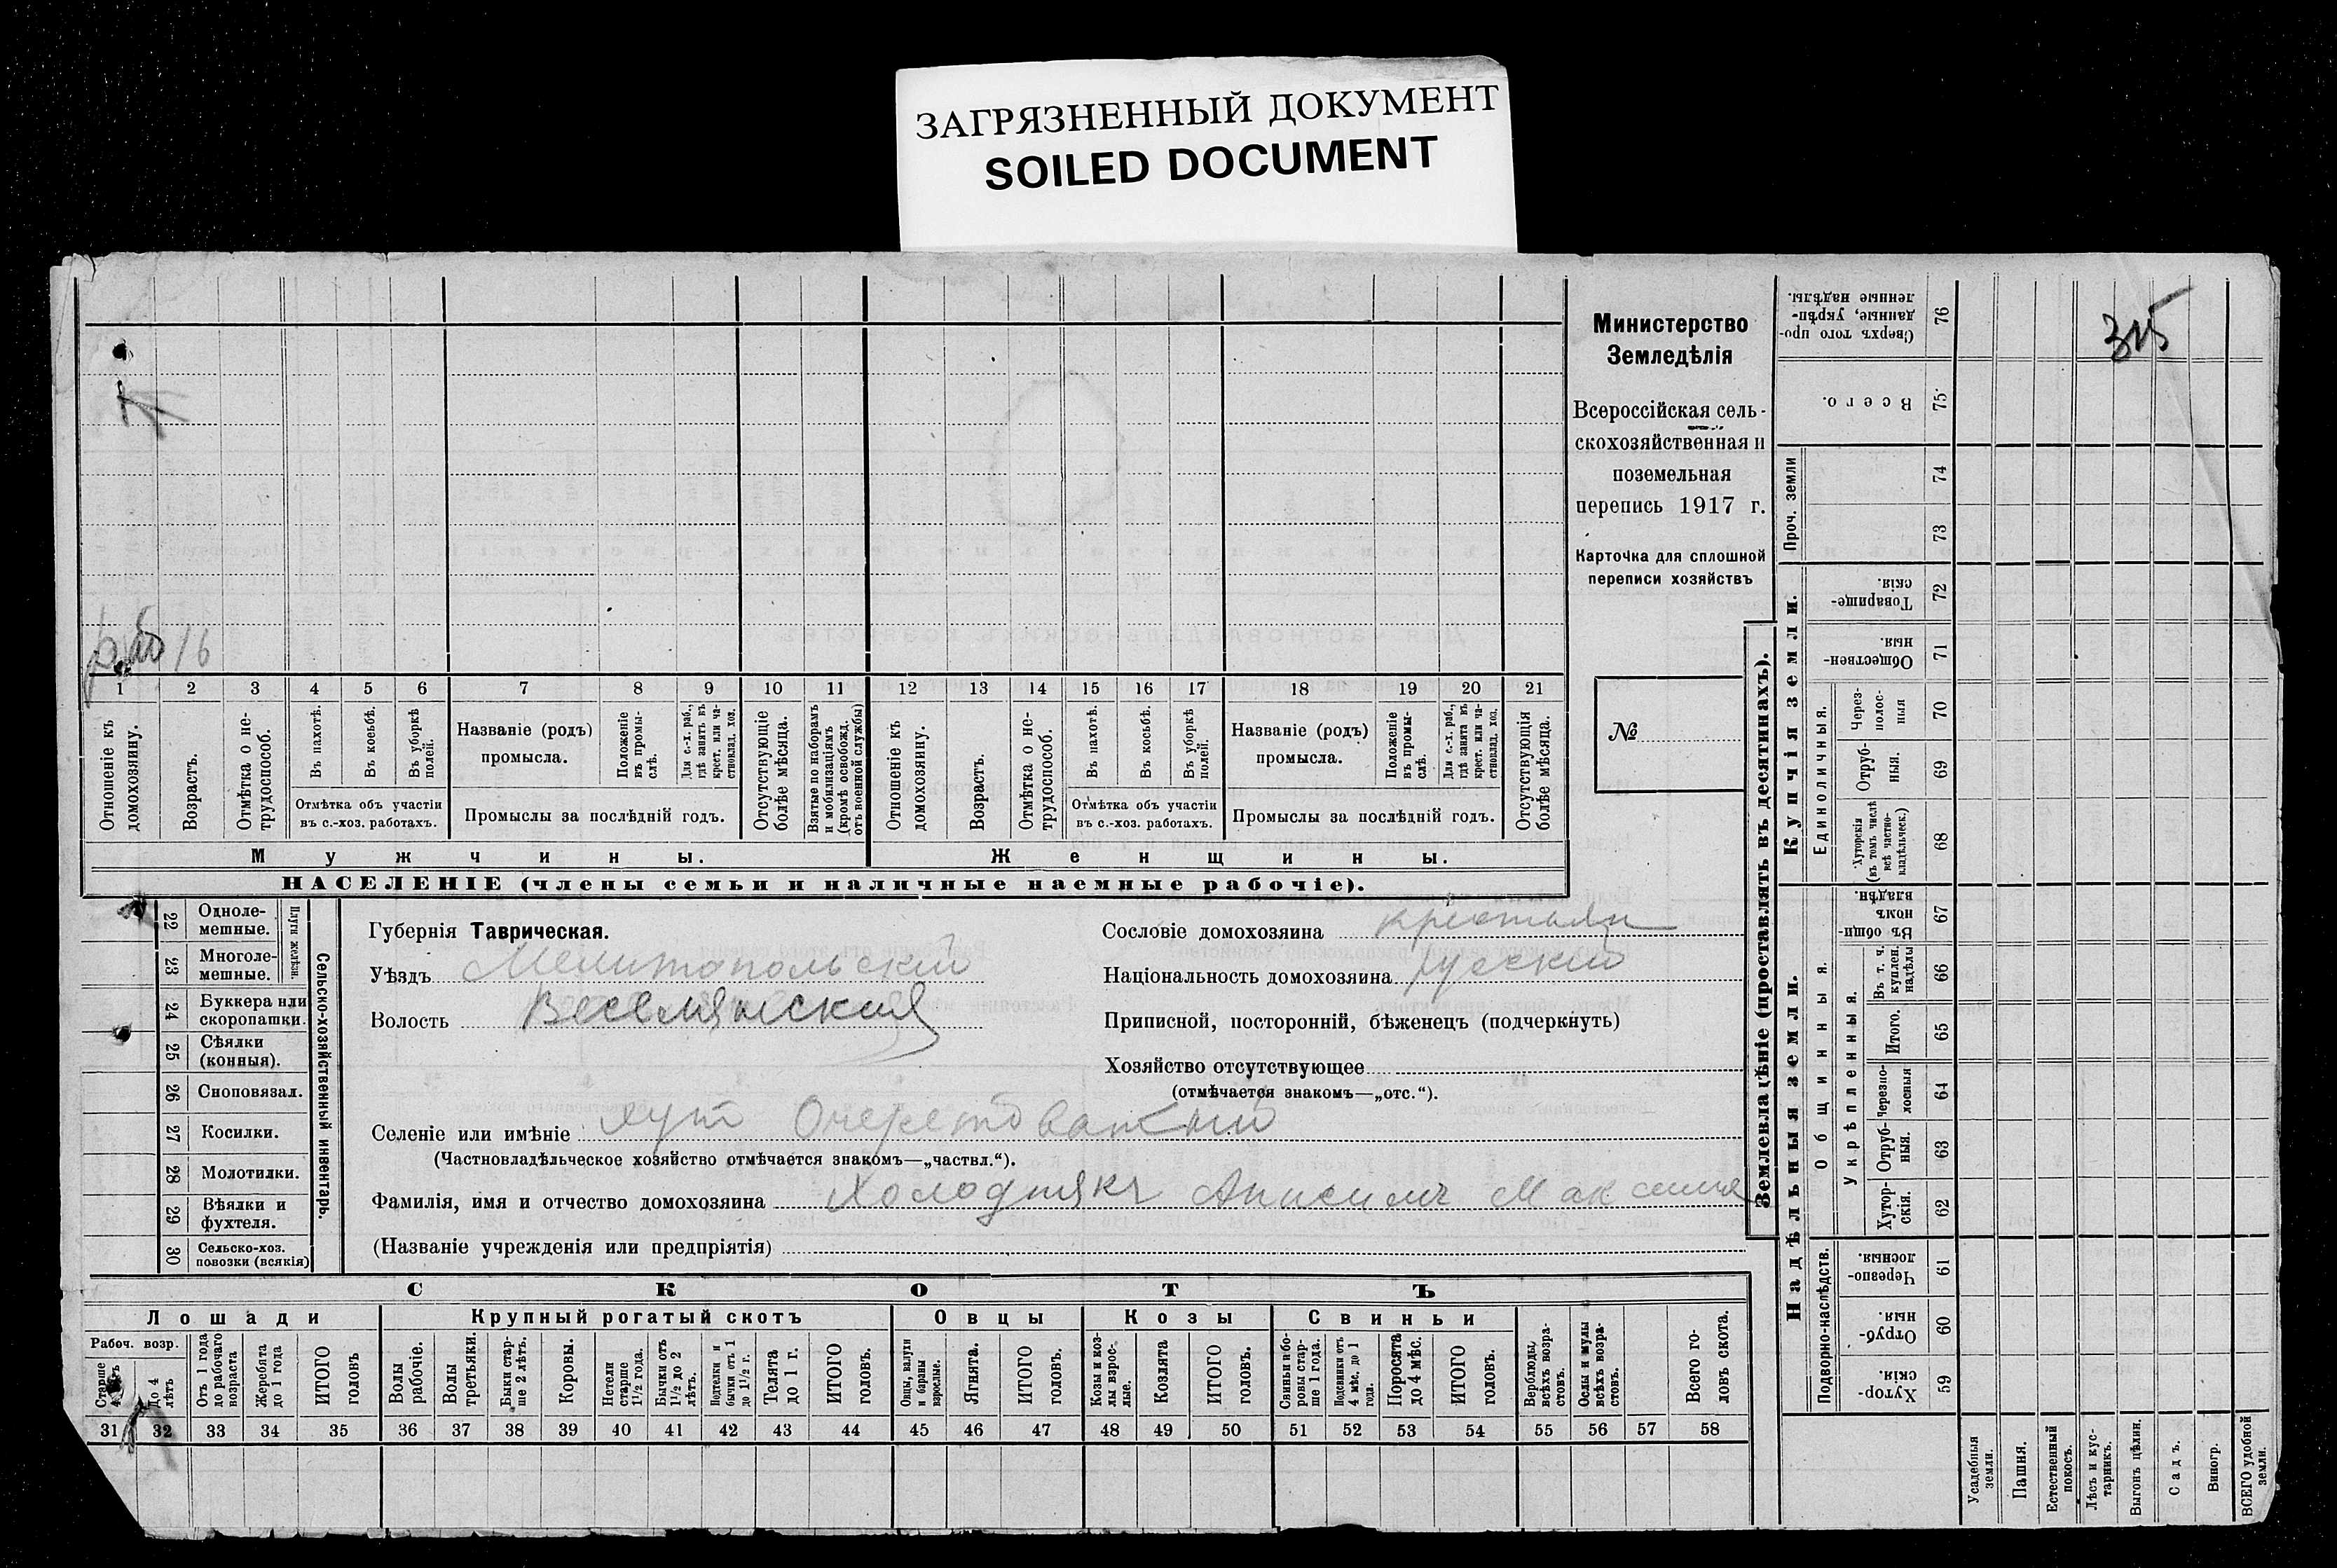 ЗАГРЯЗНЕННЫЙ ДОКУМЕНТ
SOILED DOCUMENT
Министерство
Земледѣлія
Всероссійская сель-
скохозяйственная и
поземельная
перепись 1917 г.
Карточка для сплошной
переписи хозяйствъ
№
16
1 2 3 4 5 6 7 8 9 10 11 12 13 14 15 16 17 18 19 20 21
Отношеніе къ домохозяину.
Возрастъ.
Отмѣтка о не-трудоспособ.
Въ пахотѣ.
Въ косьбѣ.
Въ уборкѣ полей.
Отмѣтка объ участіи
въ с.-хоз. работахъ.
Названіе (родъ)
промысла.
Положеніе въ промы-слѣ.
Для с.-х. раб., гдѣ занятъ въ крест. или ча-стновлад. хоз.
Промыслы за послѣдній годъ.
Отсутствующіе болѣе мѣсяца.
Взятые по наборамъ и мобилизаціямъ (кромѣ освобожд. отъ военной службы)
Отношеніе къ домохозяину.
Возрастъ.
Отмѣтка о не-трудоспособ.
Въ пахотѣ.
Въ косьбѣ.
Въ уборкѣ полей.
Отмѣтка объ участіи
въ с.-хоз. работахъ.
Названіе (родъ)
промысла.
Положеніе въ промы-слѣ.
Для с.-х. раб., гдѣ занята въ крест. или ча-стновлад. хоз.
Промыслы за послѣдній годъ.
Отсутствующія болѣе мѣсяца.
Мужчины.
Женщины.
НАСЕЛЕНІЕ (члены семьи и наличные наемные рабочіе).
22 Одноле-мешные.
23 Многоле-мешные.
Плуги желѣзн.
24 Буккера или скоропашки.
25 Сѣялки (конныя).
26 Сноповязал.
27 Косилки.
28 Молотилки.
29 Вѣялки и фухтеля.
30 Сельско-хоз. повозки (всякія)
Сельско-хозяйственный инвентарь.
Губернія Таврическая.
Уѣздъ Мелитопольскій
Волость Веселянская
Сословіе домохозяина крестьян
Національность домохозяина русскій
Приписной, посторонній, бѣженецъ (подчеркнуть)
Хозяйство отсутствующее
(отмѣчается знакомъ—„отс.“).
Селеніе или имѣніе хут Очеретоватый
(Частновладѣльческое хозяйство отмѣчается знакомъ—„частвл.“).
Фамилія, имя и отчество домохозяина Холоднякъ Анисимъ Максимов
(Названіе учрежденія или предпріятія)
СКОТЪ
Лошади
Крупный рогатый скотъ
Овцы
Козы
Свиньи
Рабоч. возр.
Старше
До 4 лѣтъ
Отъ 1 года до рабочаго возраста
Жеребята до 1 года
ИТОГО головъ
Волы рабочіе.
Волы третьяки.
Быки стар-ше 2 лѣтъ.
Коровы.
Нетели старше 1½ года.
Бычки отъ 1½ до 2 лѣтъ.
Подтелки и бычки отъ 1 до 1½ г.
Телята до 1 г.
ИТОГО головъ.
Овцы, валухи и бараны взрослые.
Ягнята.
ИТОГО головъ.
Козы и коз-лы взрос-лые.
Козлята
ИТОГО головъ.
Свиньи и бо-ровы стар-ше 1 года.
Подсвинки отъ 4 мѣс. до 1 года.
Поросята до 4 мѣс.
ИТОГО головъ.
Верблюды, всѣхъ возра-стовъ.
Ослы и мулы всѣхъ возра-стовъ.
Всего го-ловъ скота.
31 32 33 34 35 36 37 38 39 40 41 42 43 44 45 46 47 48 49 50 51 52 53 54 55 56 57 58
Землевладѣніе (проставлять въ десятинахъ).
Надѣльныя земли.
Купчія земли.
Проч. земли
Подворно-наслѣдств.
Общинныя.
Укрѣпленныя.
Единоличныя.
Сверхъ того про-данные, укрѣп-ленные надѣлы. 76
Всего. 75
74
73
Товарище-скія. 72
Обществен-ныя 71
Через-полос-ныя 70
Отруб-ныя. 69
Хуторскія (въ томъ числѣ всѣ частно-владѣльческ.) 68
Въ общи-номъ владѣн. 67
Въ т. ч. куплен. надѣлы 66
Итого. 65
Черезпо-лосныя 64
Отруб-ныя. 63
Хутор-скія. 62
Черезпо-лосныя. 61
Отруб-ныя. 60
Хутор-скія. 59
Усадебныя земли.
Пашня.
Естественный покосъ.
Лѣсъ и кус-тарникъ.
Выгонъ цѣлин.
Садъ.
Виногр.
ВСЕГО удобной земли.
315